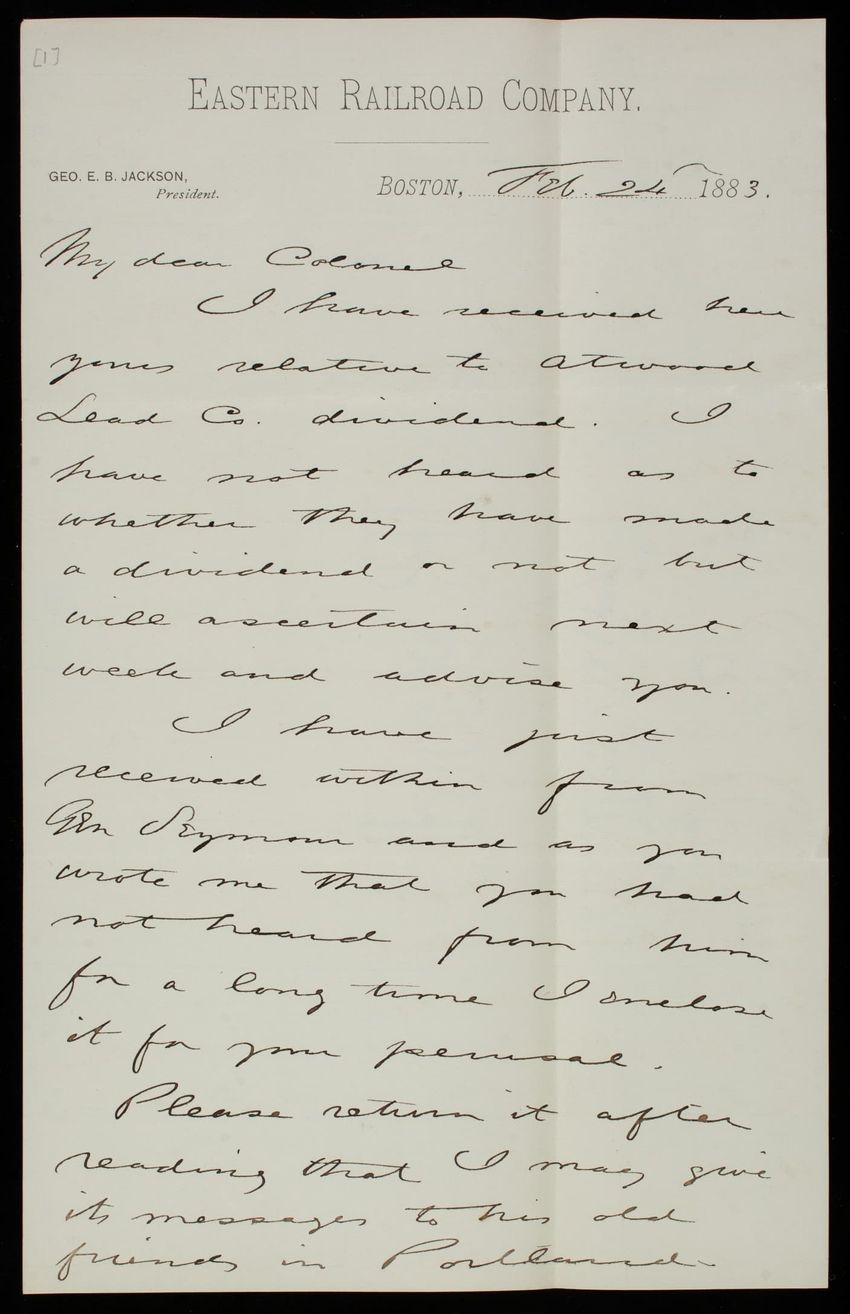 [1]
EASTERN RAILROAD COMPANY.
GEO. E. B. JACKSON,
President.
BOSTON, Feb. 24 1883.
My dear Colonel
I have received here
yours relative to Atwood
Lead Co. dividend. I
have not heard as to
whether they have made
a dividend or not but
will ascertain next
week and advise you.
I have just
received within from
Gen Seymour and as you
wrote me that you had
not heard from him
for a long time I enclose
it for your perusal.
Please return it after
reading that I may give
its messages to his old
friends in Portland.